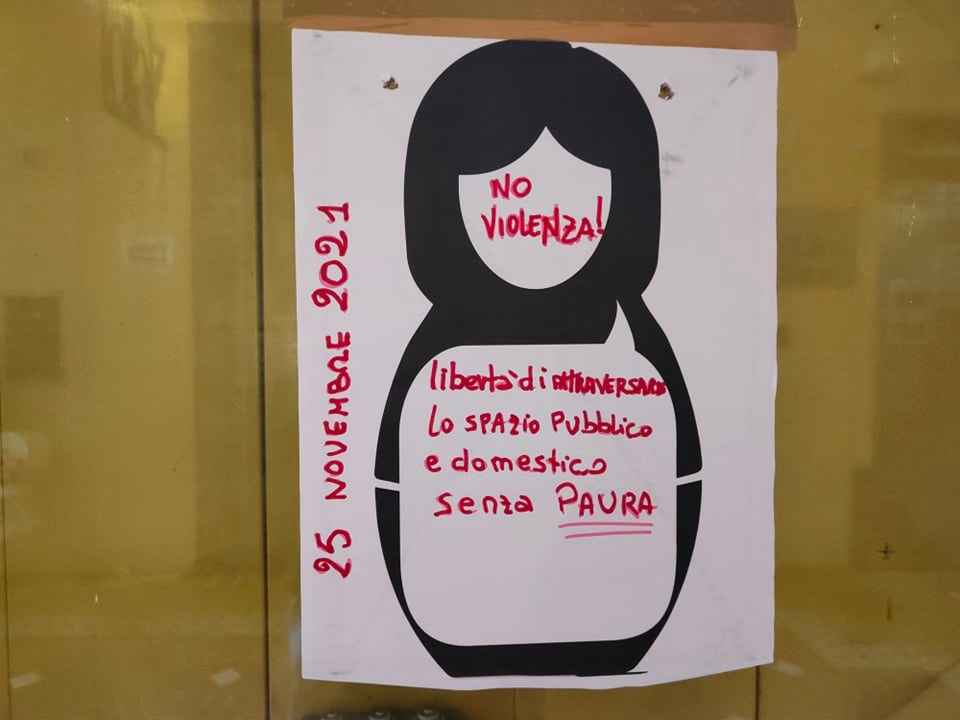 NO
VIOLENZA!
libertà di ATTRAVERSARE
Lo SPAZIO PUbblico
e domestico
senza PAURA
25 NOVEMBRE 2021